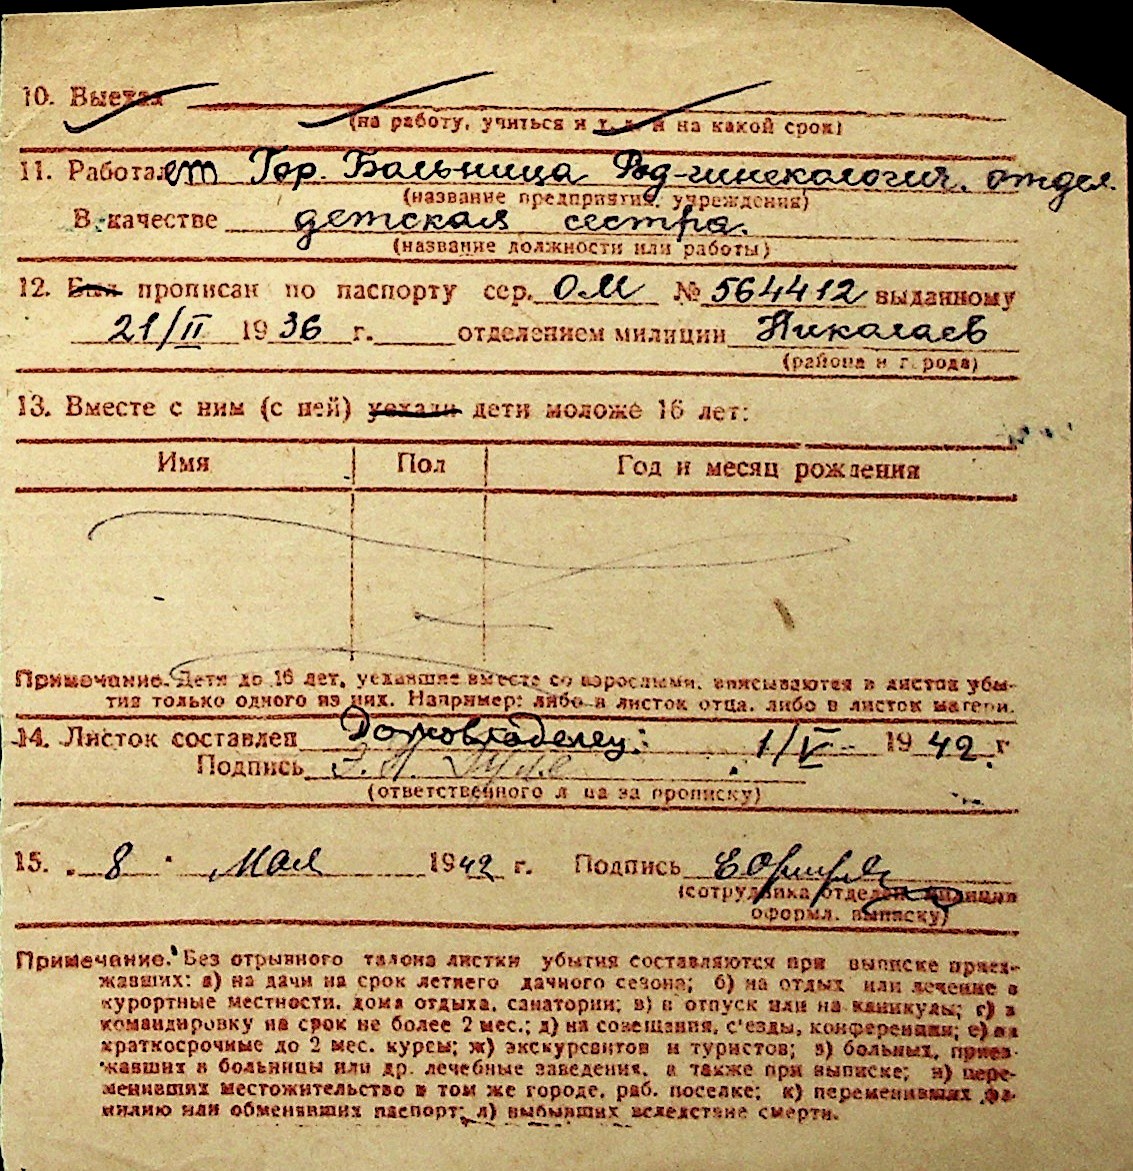 10. Выехал
(на работу, учиться и т. д. и на какой срок)
11. Работает Гор. Больница Род-гинекология. отдел.
(название предприятия, учреждения)
В качестве детская сестра.
(название должности или работы)
12. Был прописан по паспорту сер. ОМ № 564412 выданному
21/II 1936 г. отделением милиции Николаев
(района и города)
13. Вместе с ним (с ней) уехали дети моложе 16 лет:
Имя Пол Год и месяц рождения
Примечание. Дети до 16 лет, уехавшие вместе со взрослыми, вписываются в листок убы-
тия только одного из них. Например: либо в листок отца, либо в листок матери.
14. Листок составлен Домовладелец: 1/V- 1942 г.
Подпись
(ответственного лица за прописку)
15. 8 Мая 1942 г. Подпись
(сотрудника отделен. милиции
оформл. выписку)
Примечание. Без отрывного талона листки убытия составляются при выписке приез-
жавших: а) на дачи на срок летнего дачного сезона; б) на отдых или лечение в
курортные местности, дома отдыха, санатории; в) в отпуск или на каникулы; г) в
командировку на срок не более 2 мес.; д) на совещания, с'езды, конференции; е) на
краткосрочные до 2 мес. курсы; ж) экскурсантов и туристов; з) больных, приез-
жавших в больницы или др. лечебные заведения, а также при выписке; и) пере-
менивших местожительство в том же городе, раб. поселке; к) переменивших фа-
милию или обменявших паспорт; л) выбывших вследствие смерти.